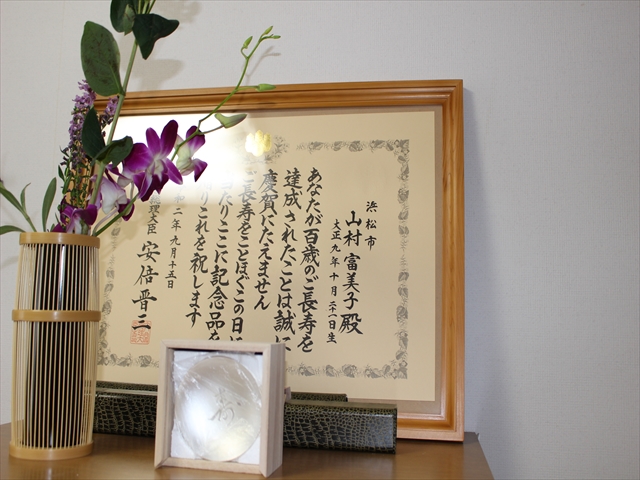 浜松市
山村富美子殿
大正九年十月二十一日生
あなたが百歳のご長寿を
達成されたことは誠に
慶賀にたえません
ご長寿をことほぐこの日に
たりここに記念品を
りこれを祝します
二年九月十五日
理大臣 安倍晋三
寿